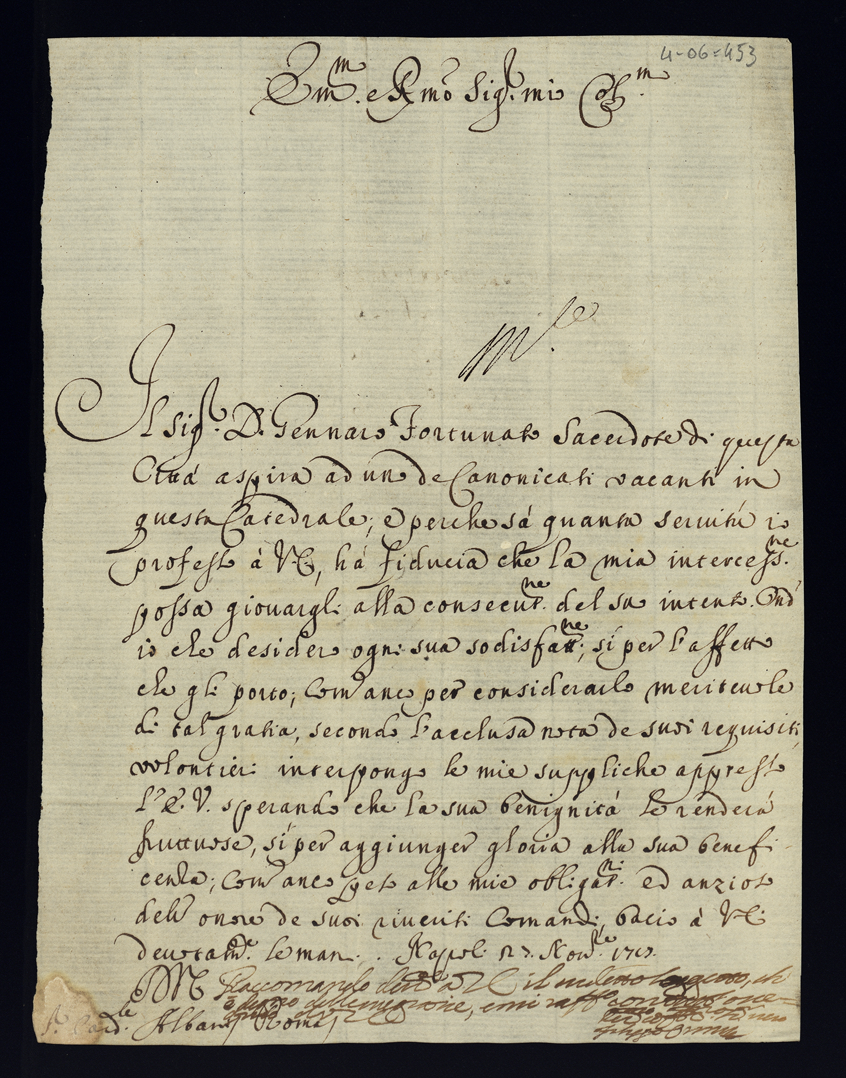 4-06-453
Em.ᵐ e Rmo Sig.ʳ mio Col.ᵐ
Il Sig.ʳ D. Gennaro Fortunato Sacerdote di questa
Città aspira ad uno de Canonicati vacanti in
questa Catedrale; e perche sà quanta servitù io
professo à VE, hà fiducia che la mia intercess.ⁿᵉ
possa giovargli alla consecut.ⁿᵉ del suo intento. Ond'
io che desidero ogni sua sodisfatt.ⁿᵉ; sì per l'affetto
che gli porto; com'anco per considerarlo meritevole
di tal gratia, secondo l'acclusa nota de suoi requisiti,
volontieri interpongo le mie suppliche appresso
l'E. V. sperando che la sua benignità le renderà
fruttuose, sì per aggiunger gloria alla sua benefi-
cenza; com'anco peso alle mie obligat.ⁿⁱ ed anzioso
dell'onore de suoi riveriti Comandi, bacio à VE
devotam.ᵉ le mani. Napoli Nov.ʳᵉ
Raccomando à VE il
Card.ˡᵉ Albani Roma